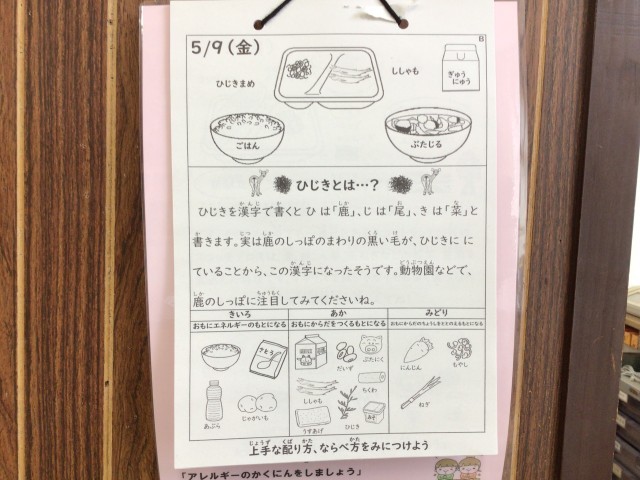 5/9(金)
B
ひじきまめ
ししゃも
ぎゅうにゅう
ごはん
ぶたじる
ひじきとは…?
ひじきを漢字で書くと ひ は「鹿」、じ は「尾」、き は「菜」と
書きます。実は鹿のしっぽのまわりの黒い毛が、ひじきに に
ていることから、この漢字になったそうです。動物園などで、
鹿のしっぽに注目してみてくださいね。
きいろ
おもにエネルギーのもとになる
あか
おもにからだをつくるもとになる
みどり
おもにからだのちょうしをととのえるもとになる
さとう
あぶら
じゃがいも
だいず
ぶたにく
ししゃも
ちくわ
うすあげ
ひじき
みそ
にんじん
もやし
ねぎ
上手な配り方、ならべ方をみにつけよう
「アレルギーのかくにんをしましょう」